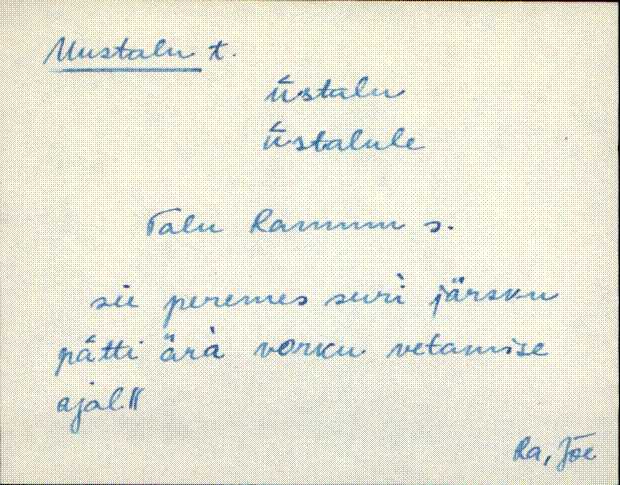 Uustalu t.
üstalu
üstalule
Talu Rammu s.
sìi peremes suri järsku
pätti ärà vorku vetamise
ajal‖
Ra, Jõe